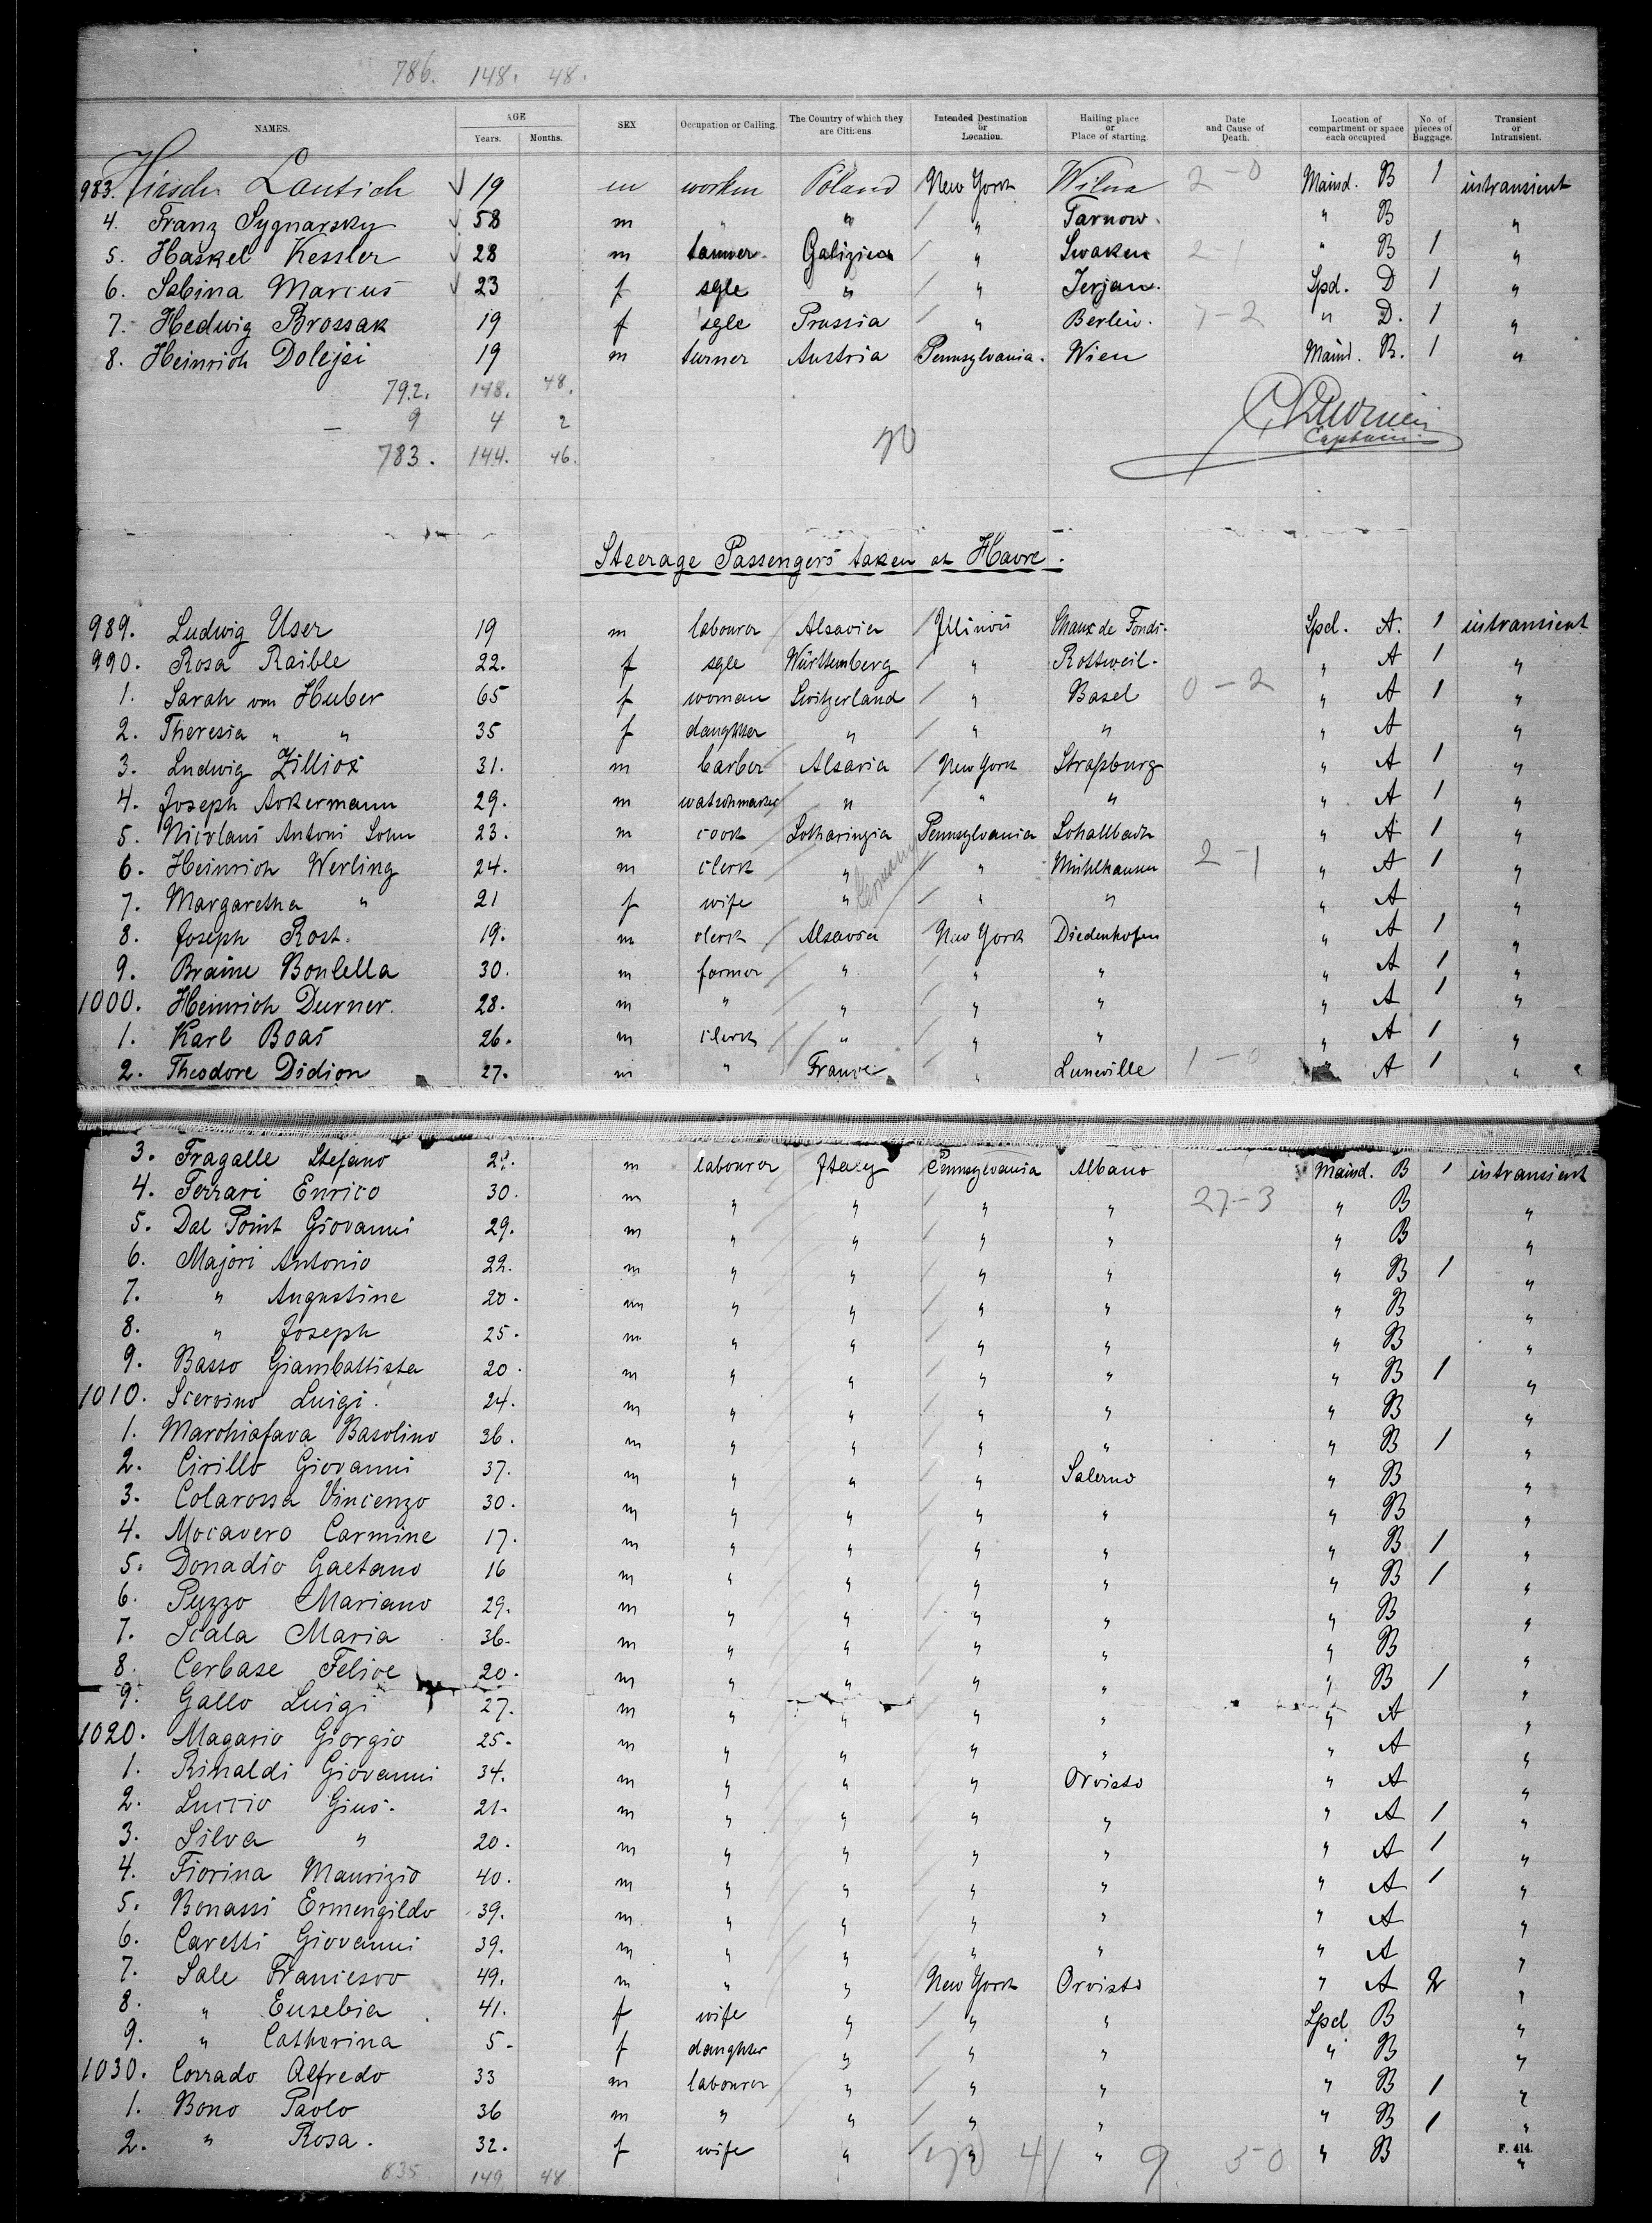 786. 148. 48.
NAMES. AGE Years. Months. SEX Occupation or Calling. The Country of which they are Citizens Intended Destination or Location. Hailing place or Place of starting. Date and Cause of Death. Location of compartment or space each occupied No. of pieces of Baggage. Transient or Intransient.
983. Hirsch Lautich √ 19 m worker Poland New York Wilna 2-0 Maind. B 1 intransient
4. Franz Sygnarsky √ 58 m " " / " Tarnow. " B "
5. Haskel Kessler √ 28 m tanner. Galizien / " Swaken 2-1 " B 1 "
6. Sabina Marcus √ 23 f sgle " / " Jerjan. Spd. D 1 "
7. Hedwig Brossak 19 f sgle Prussia " Berlin. 7-2 " D. 1 "
8. Heinrich Dolejsi 19 m turner Austria Pennsylvania. Wien Maind. B. 1 "
792. 148. 48.
— 9 4 2
783. 144. 46.
Captain.
Steerage Passengers taken at Havre.
989. Ludwig User 19 m labourer / Alsacia / Illinois Chaux de Fonds. Spd. A. 1 intransient
990. Rosa Raible 22. f sgle Württemberg / " Rottweil. " A 1 "
1. Sarah von Huber 65 f woman Switzerland / " Basel 0-2 " A 1 "
2. Theresia " " 35 f daughter " / " " " A "
3. Ludwig Zilliox 31. m barber Alsacia / New York Strassburg " A 1 "
4. Joseph Ackermann 29. m watchmaker / " " " " A 1 "
5. Nicolaus Antoni Sohn 23. m cook / Lotharingia Pennsylvania Schallbach " A 1 "
6. Heinrich Werling 24. m clerk / " / " Mühlhausen 2-1 " A 1 "
7. Margaretha " 21 f wife / " Germany / " " " A "
8. Joseph Rost. 19. m clerk / Alsacia New York Diedenhofen " A 1 "
9. Braine Boulella 30. m farmer / " / " " " A 1 "
1000. Heinrich Durner. 28. m " / " / " " " A 1 "
1. Karl Boas 26. m clerk / " / " " " A 1 "
2. Theodore Didion 27. m " / France / " Luneville 1-0 " A 1 "
3. Fragalle Stefano m labourer / Italy Pennsylvania Albano Maind. B 1 intransient
4. Ferrari Enrico 30. m " " / " " 27-3 " B "
5. Dal Point Giovanni 29. m " " / " " " B "
6. Majori Antonio 22. m " " / " " " B 1 "
7. " Augustine 20. m " " / " " " B "
8. " Joseph 25. m " " / " " " B "
9. Basso Giambattista 20. m " " / " " " B 1 "
1010. Scervino Luigi. 24. m " " / " " " B "
1. Marchiafava Basolino 36. m " " / " " " B 1 "
2. Cirillo Giovanni 37. m " " / " Salerno " B "
3. Colarossa Vincenzo 30. m " " / " " " B "
4. Mocavero Carmine 17. m " " / " " " B 1 "
5. Donadio Gaetano 16 m " " / " " " B 1 "
6. Puzzo Mariano 29. m " " / " " " B "
7. Scala Maria 36. m " " / " " " B "
8. Cerbase Felice 20. m " " / " " " B 1 "
9. Gallo Luigi 27. m " " / " " " A "
1020. Magario Giorgio 25. m " " / " " " A "
1. Rinaldi Giovanni 34. m " " / " Orvisto " A "
2. Luccio Gius. 21. m " " / " " " A 1 "
3. Silva " 20. m " " / " " " A 1 "
4. Fiorina Maurizio 40. m " " / " " " A 1 "
5. Bonassi Ermengildo 39. m " " / " " " A "
6. Caretti Giovanni 39. m " " / " " " A "
7. Sale Francesco 49. m " " New York Orvisto " A 2 "
8. " Eusebia 41. f wife " / " " Spd B "
9. " Catherina 5. f daughter " / " " " B "
1030. Corrado Alfredo 33 m labourer / " / " " " B 1 "
1. Bono Paolo 36 m " / " / " " " B 1 "
2. " Rosa. 32. f wife " / " " " B "
F. 414.
835 149 48 41 9. 50